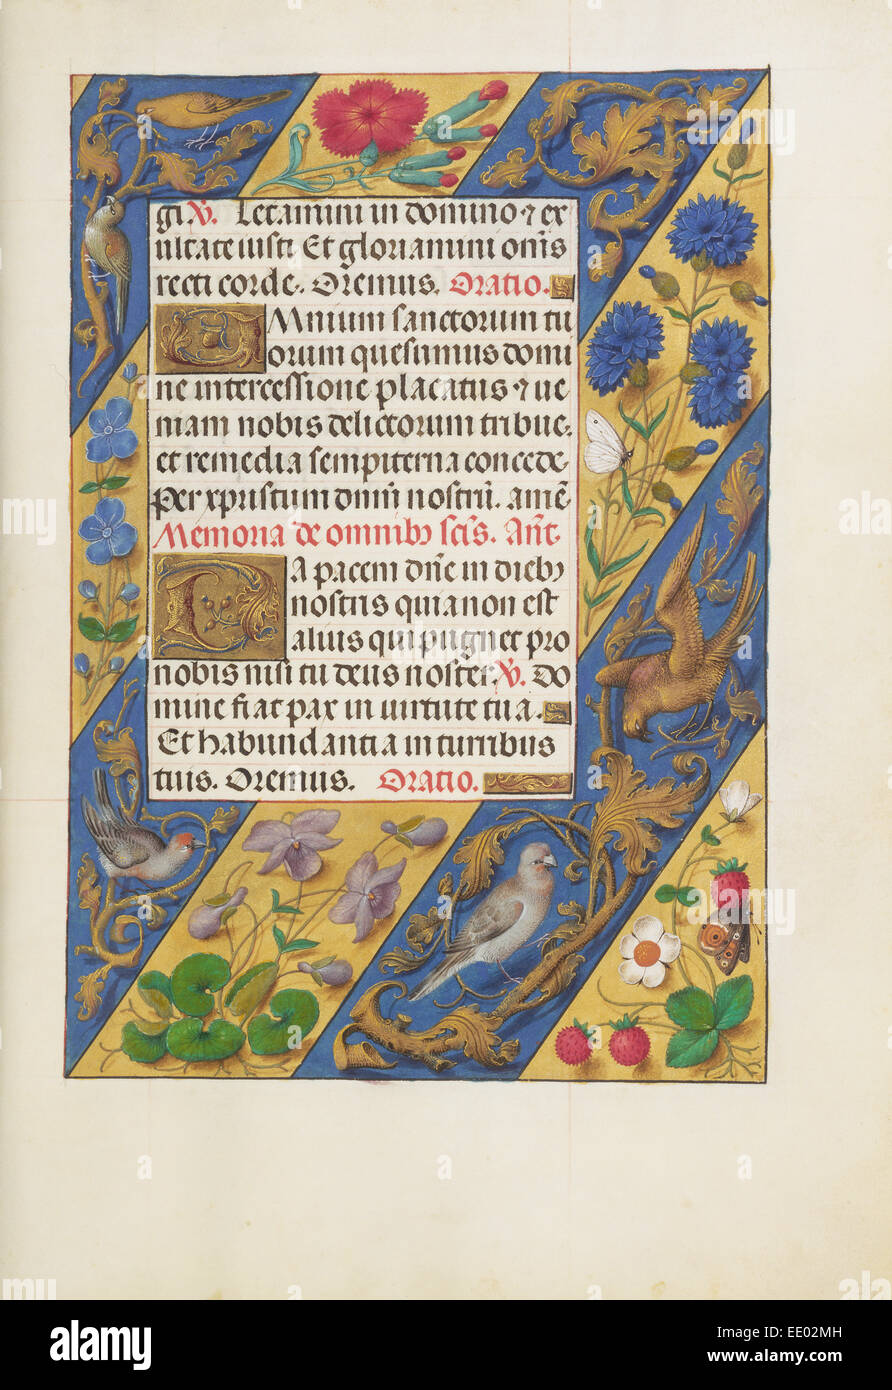 gi ℣. Letamini in domino ⁊ ex
ultate iusti Et gloriamini om̄s
recti corde. Oremus. Oratio.
OMnium sanctorum tu
orum quesumus domi
ne intercessione placatus ⁊ ue
niam nobis delictorum tribue.
et remedia sempiterna concede
Per xp̄ristum dnm̄ nostrū. amē
Memoria de omnibꝫ sctīs. Ant̄.
DA pacem dn̄e in diebꝫ
nostris quia non est
alius qui pugnet pro
nobis nisi tu deus noster. ℣. Do
mine fiat pax in uirtute tua.
Et habundantia in turribus
tuis. Oremus. Oratio.
alamy
Image ID: EE02MH
www.alamy.com